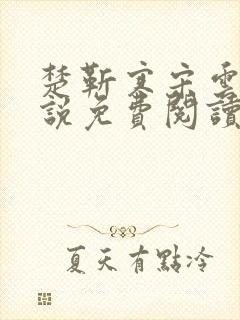 楚靳寒宋雲
說免費閱讀
夏天有點冷